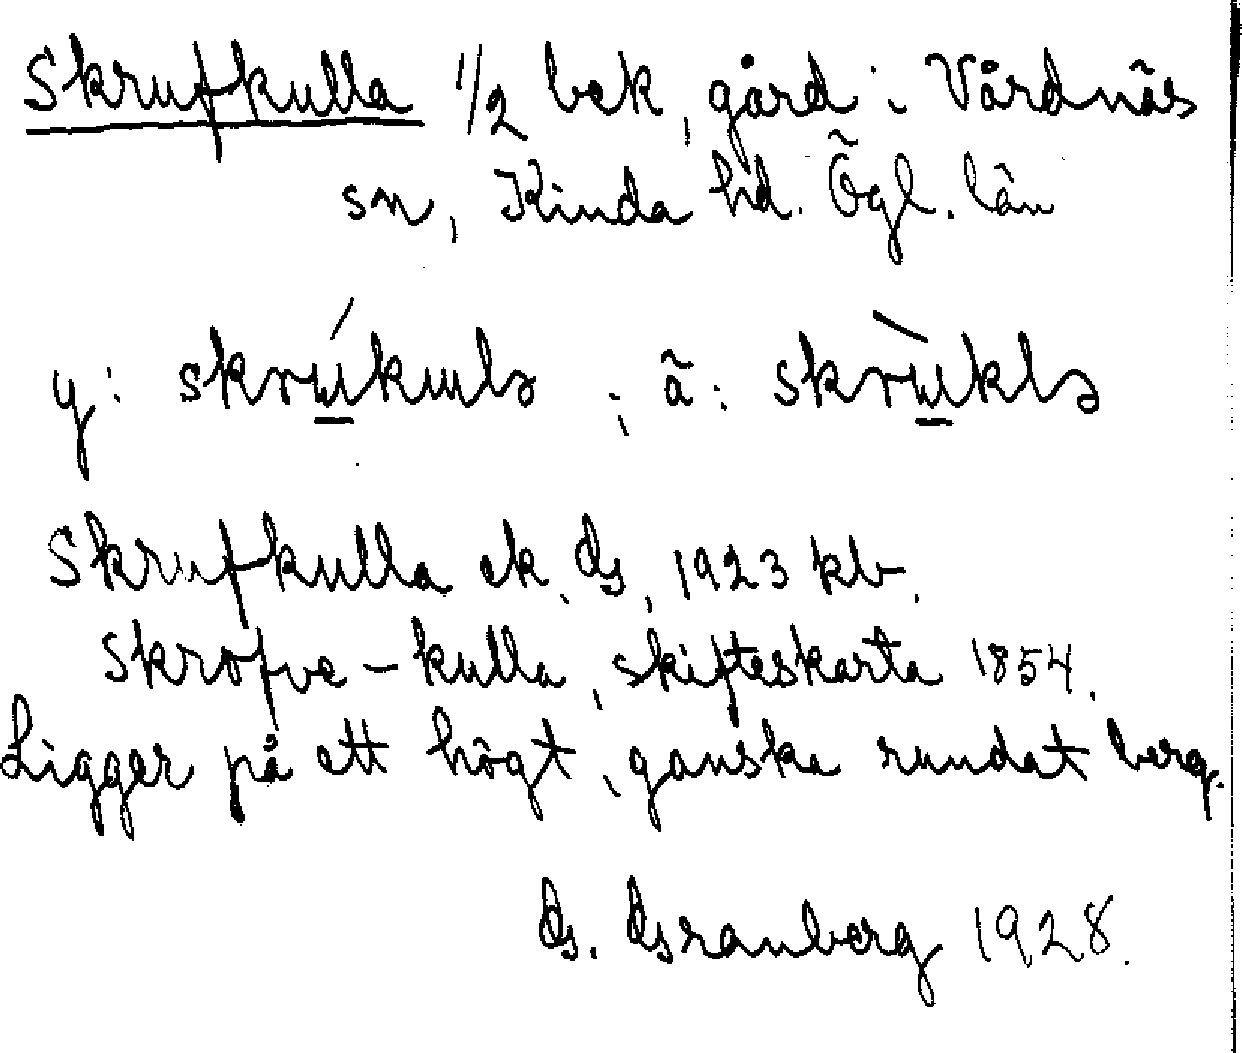 Skrufkulla 1/2 bck, gård i Vårdnäs
sn, Kinda hd. Ögl. län
y: skrúkulə ; ä: skrùklə
Skrufkulla ek. G, 1923 kb.
Skrofve-kulla, skifteskarta 1854.
Ligger på ett högt, ganska rundat berg.
G. Granberg 1928.